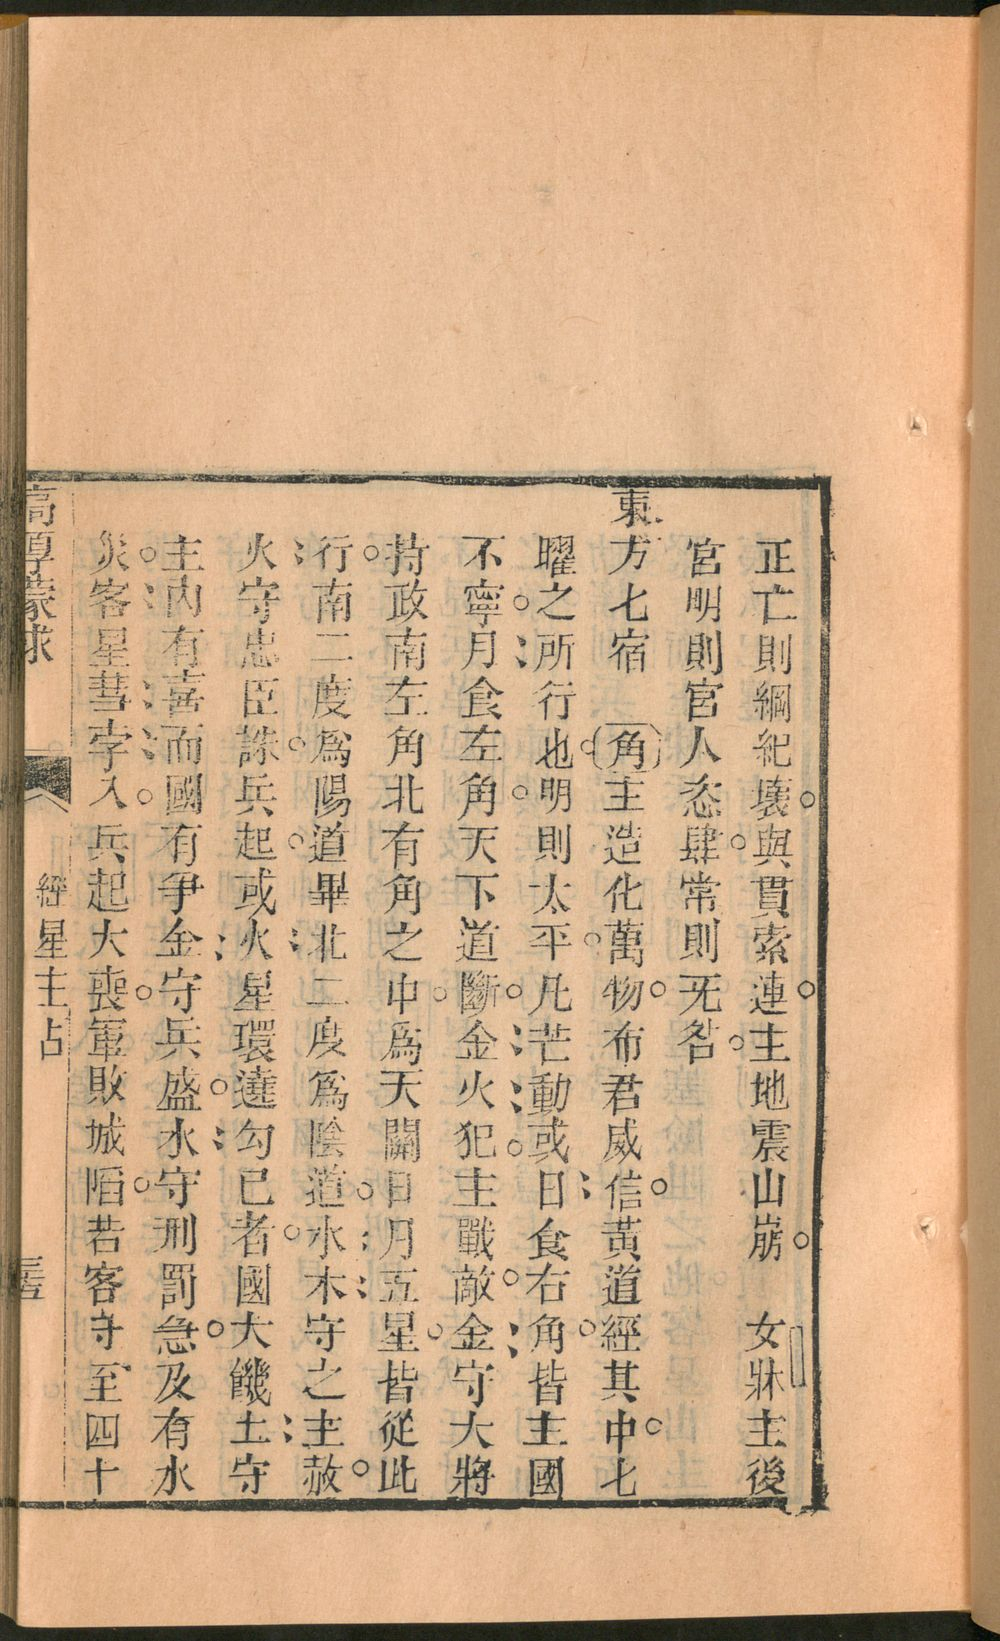 正亡則綱紀壞與貫索連主地震山崩　女牀主後
宮明則官人恣肆常則旡咎
東方七宿　角主造化萬物布君威信黃道經其中七
曜之所行也明則太平凡芒動或日食右角皆主國
不寧月食左角天下道斷金火犯主戰敵金守大將
持政南左角北有角之中爲天關日月五星皆從此
行南二度爲陽道畢北二度爲陰道水木守之主赦
火守忠臣誅兵起或火星環遶勾已者國大饑土守
主內有喜而國有爭金守兵盛水守刑罰急及有水
災客星彗孛入兵起大喪軍敗城陷若客守至四十
高厚蒙求
經星主占